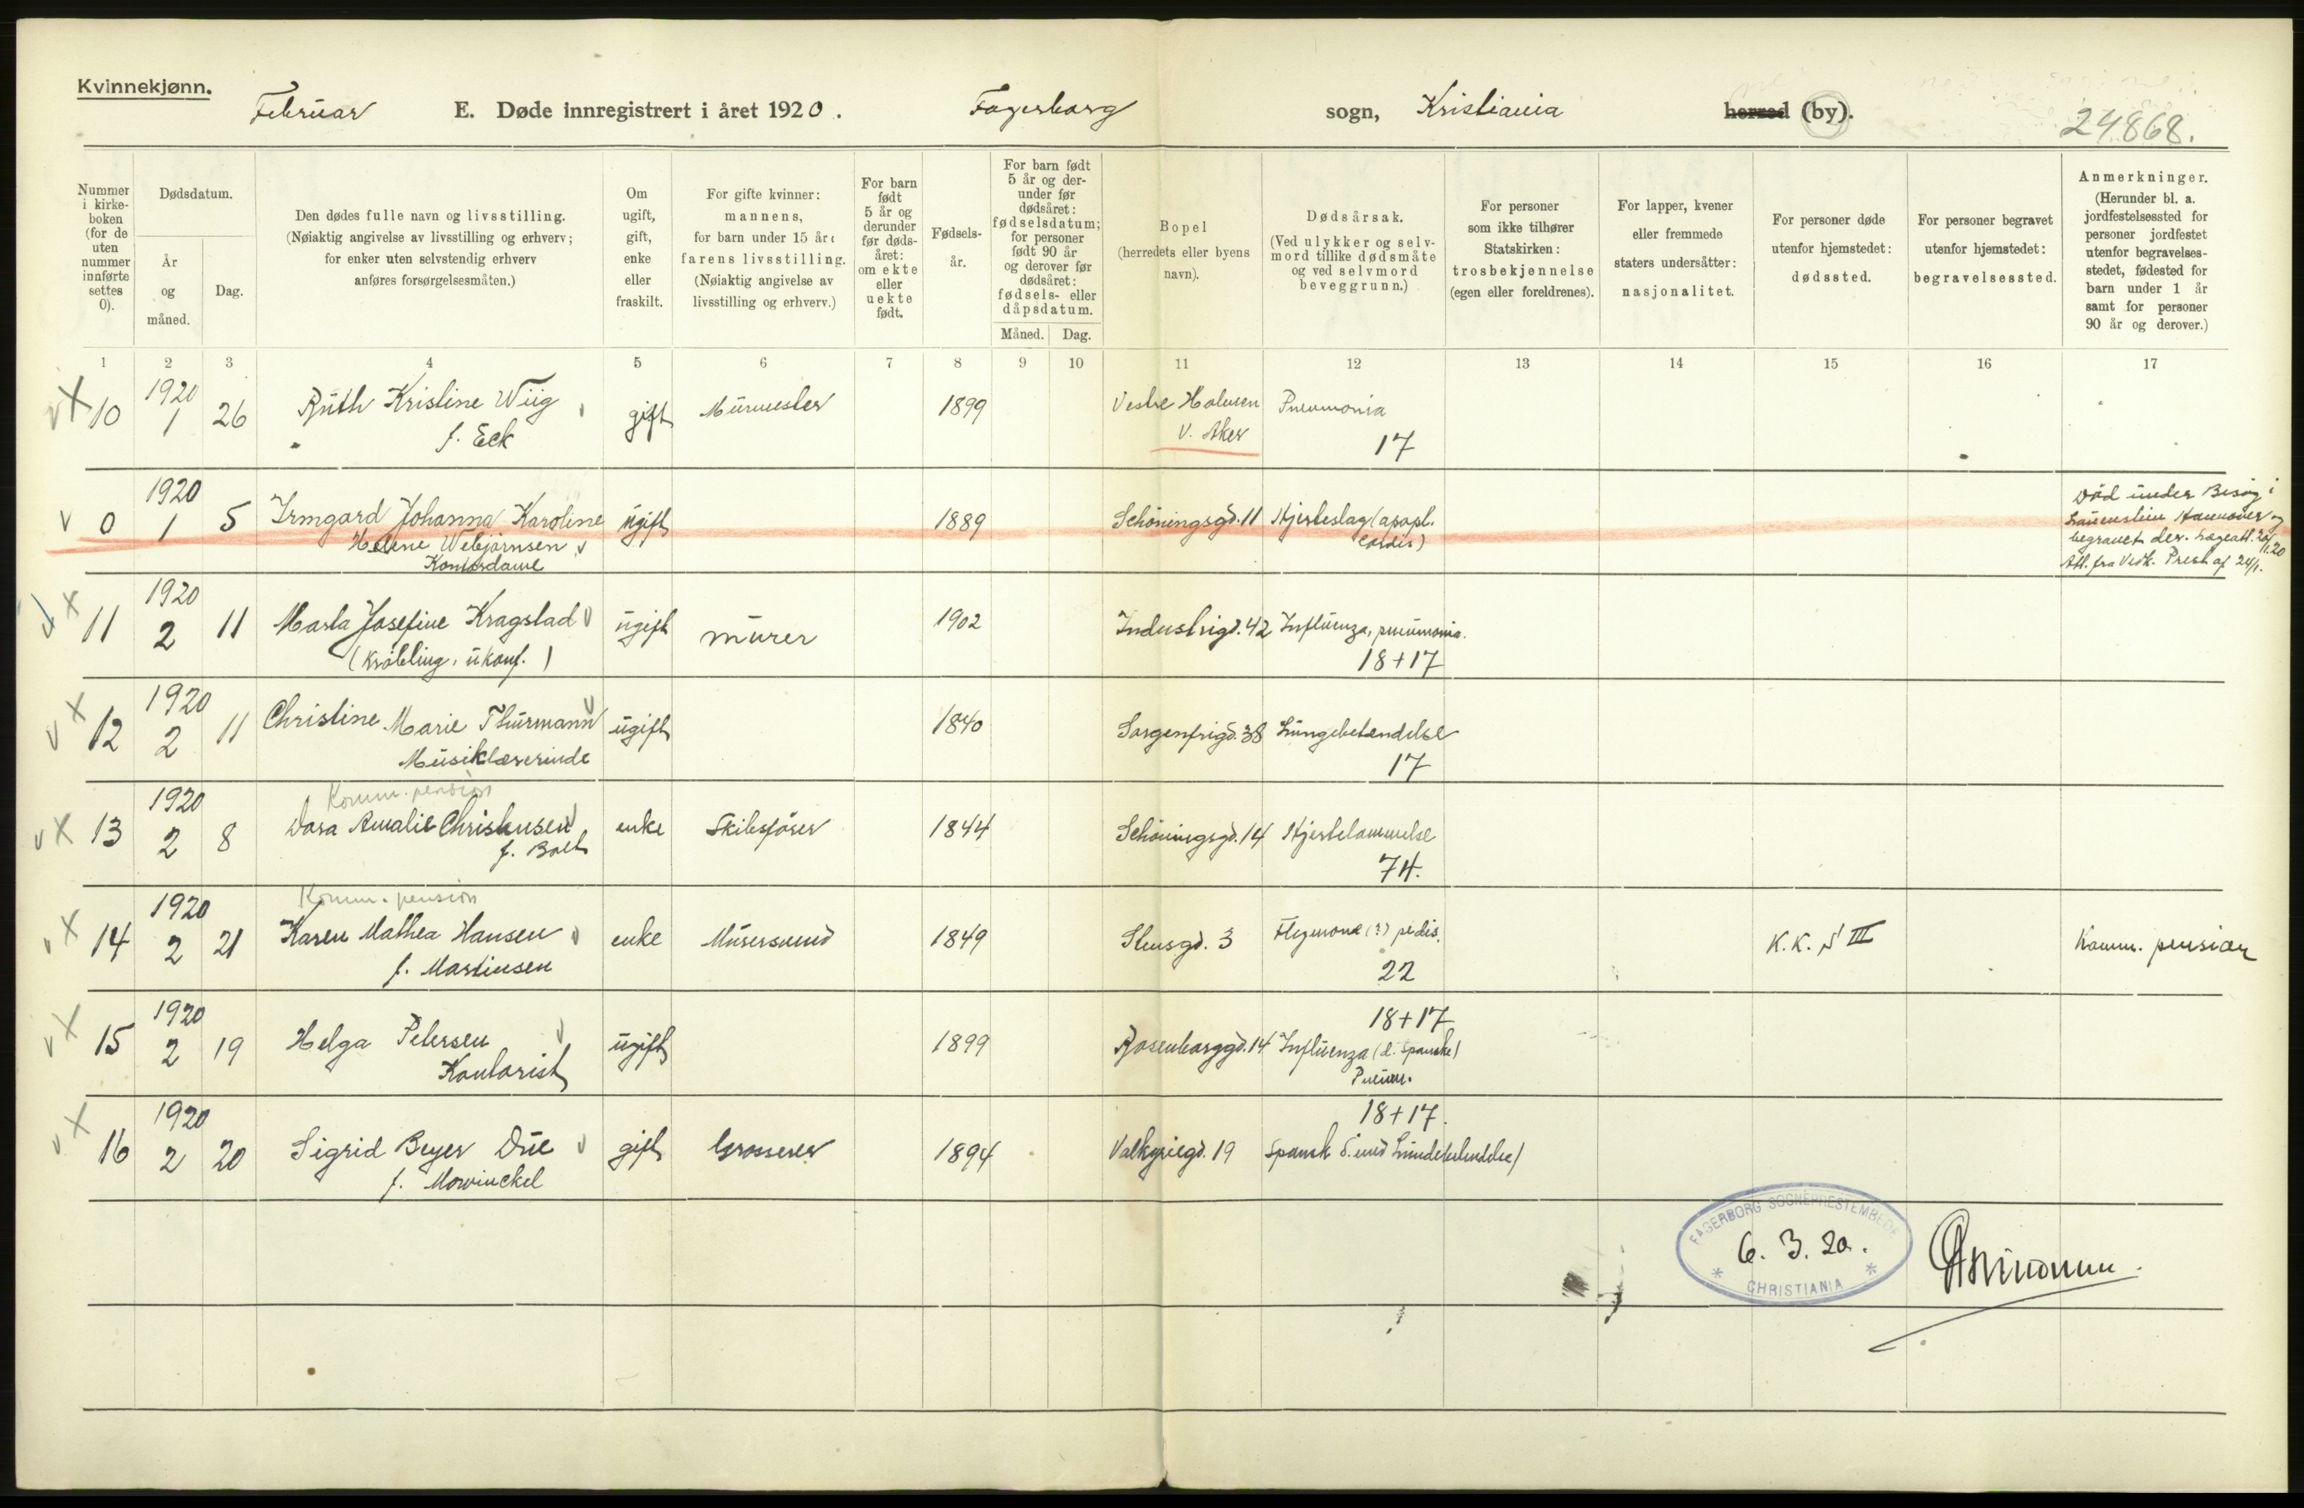 Kvinnekjønn.
Februar E. Døde innregistrert i året 1920. Fagerborg sogn, Kristiania herred (by). 24868.
Nummer i kirke-boken (for de uten nummer innførte settes 0).
Dødsdatum.
År og måned.
Dag.
Den dødes fulle navn og livsstilling.
(Nøiaktig angivelse av livsstilling og erhverv; for enker uten selvstendig erhverv anføres forsørgelsesmåten.)
Om ugift, gift, enke eller fraskilt.
For gifte kvinner: mannens, for barn under 15 år: farens livsstilling.
(Nøiaktig angivelse av livsstilling og erhverv.)
For barn født 5 år og derunder før døds-året: om ekte eller uekte født.
Fødsels-år.
For barn født 5 år og der-under før dødsåret: fødselsdatum; for personer født 90 år og derover før dødsåret: fødsels- eller dåpsdatum.
Måned. Dag.
Bopel
(herredets eller byens navn).
Dødsårsak.
(Ved ulykker og selv-mord tillike dødsmåte og ved selvmord beveggrunn.)
For personer som ikke tilhører Statskirken: trosbekjennelse (egen eller foreldrenes).
For lapper, kvener eller fremmede staters undersåtter: nasjonalitet.
For personer døde utenfor hjemstedet: dødssted.
For personer begravet utenfor hjemstedet: begravelsessted.
Anmerkninger.
(Herunder bl. a. jordfestelsessted for personer jordfestet utenfor begravelses-stedet, fødested for barn under 1 år samt for personer 90 år og derover.)
1 2 3 4 5 6 7 8 9 10 11 12 13 14 15 16 17
10 1920 1 26 Ruth Kristine Wiig gift Murmester 1899 Vestre Holmen Pneumonia
f. Eck V. Aker 17
0 1920 1 5 Irmgard Johanna Karoline ugift 1889 Schöningsgd. 11 Hjerteslag (apopl. cordis)
Helene Webjørnsen
Kontordame
Død under Besøg i
Lauenstein Hannover og
begravet der. Lægeatt. 20/1.20
Att. fra Vedk. Prest af 24/1.
11 1920 2 11 Marta Josefine Kragstad ugift murer 1902 Industrigd. 42 Influenza, pneumonia.
(Krøbling, ukonf.) 18+17
12 1920 2 11 Christine Marie Thurmann ugift 1840 Sorgenfrigd. 38 Lungebetændelse
Musiklærerinde 17
Komm. pension
13 1920 2 8 Dora Amalie Christensen enke Skibsfører 1844 Schöningsgd. 14 Hjertelammelse
74.
Komm. pension
14 1920 2 21 Karen Mathea Hansen enke Murersvend 1849 Stensgd. 3 Flegmone (?) pedis. K.K. S III Komm. pension
f. Martinsen 22
15 1920 2 19 Helga Petersen ugift 1899 Rosenborggd. 14 18+17 Influenza (d. spanske)
Kontorist Pneum.
16 1920 2 20 Sigrid Beyer Due gift Grosserer 1894 Valkyriegd. 19 18+17.
f. Mowinckel
FAGERBORG SOGNEPRESTEMBEDE
6. 3. 20.
CHRISTIANIA